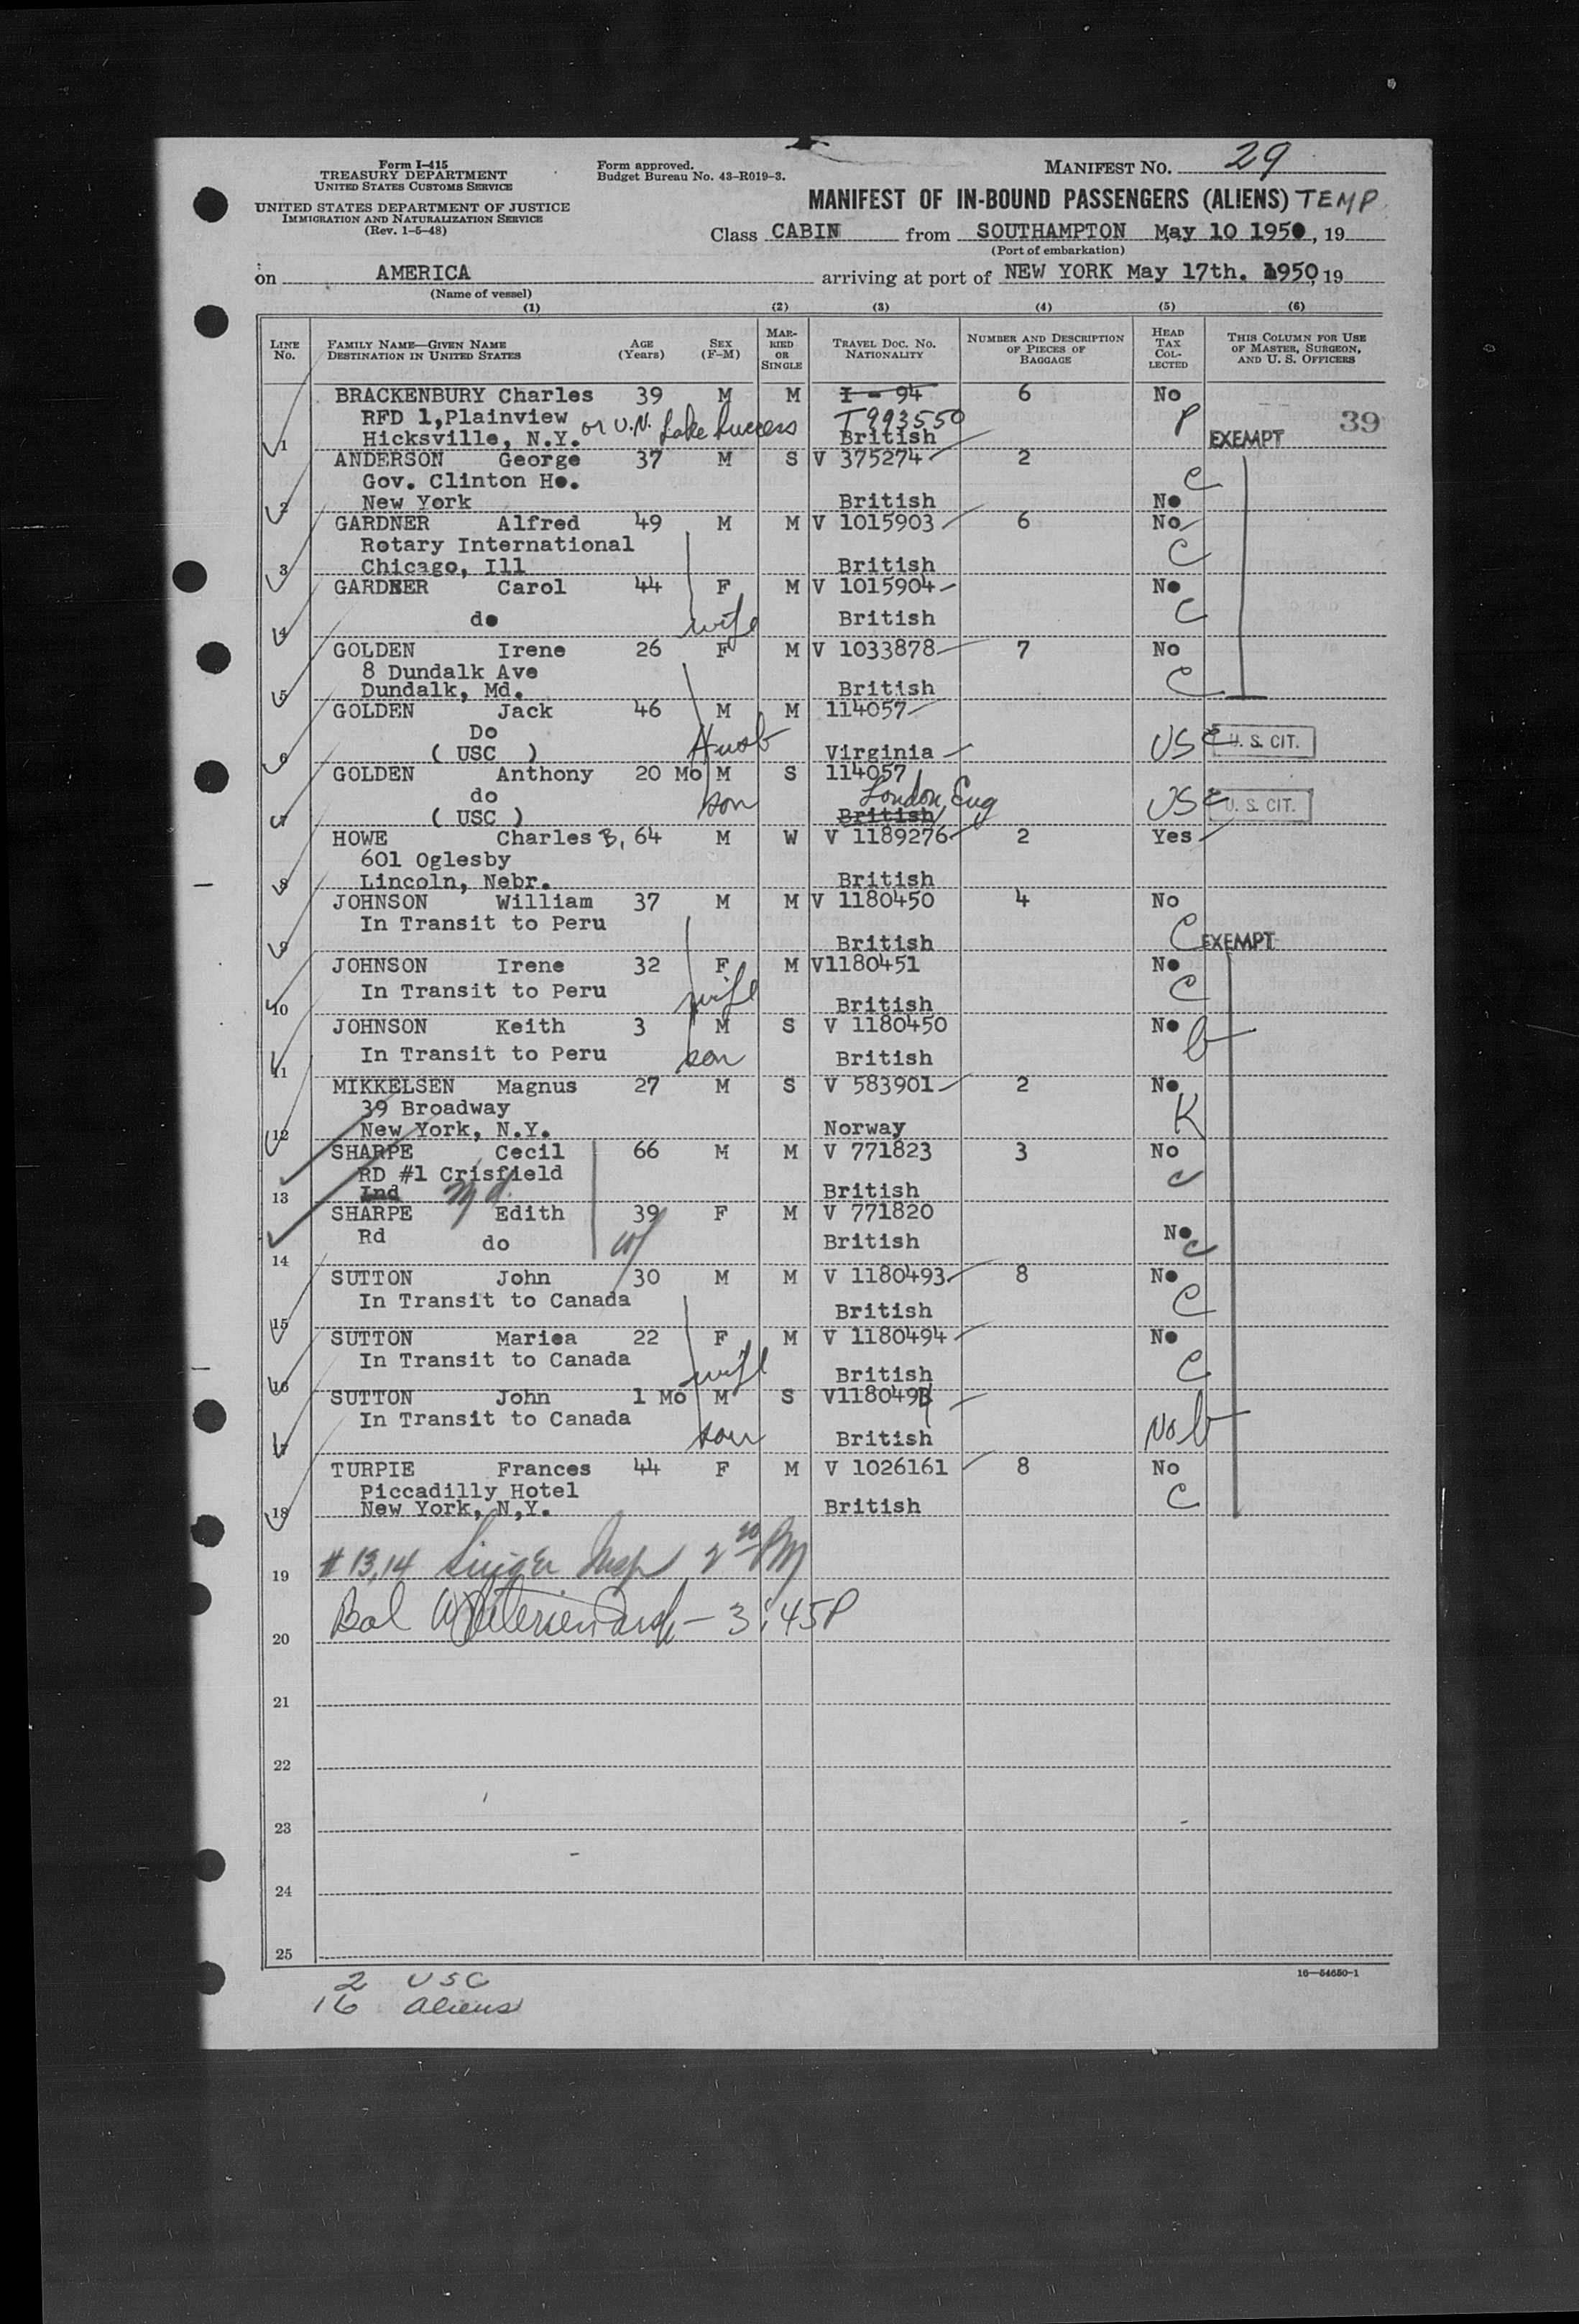 Form I-415
TREASURY DEPARTMENT
UNITED STATES CUSTOMS SERVICE
UNITED STATES DEPARTMENT OF JUSTICE
IMMIGRATION AND NATURALIZATION SERVICE
(Rev. 1-5-48)
Form approved.
Budget Bureau No. 43-R019-3.
MANIFEST NO. 29
MANIFEST OF IN-BOUND PASSENGERS (ALIENS) TEMP
Class CABIN from SOUTHAMPTON May 10 1950, 19
(Port of embarkation)
on AMERICA arriving at port of NEW YORK May 17th. 1950, 19
(Name of vessel)
(1) (2) (3) (4) (5) (6)
LINE No. FAMILY NAME—GIVEN NAME DESTINATION IN UNITED STATES AGE (Years) SEX (F–M) MARRIED OR SINGLE TRAVEL DOC. NO. NATIONALITY NUMBER AND DESCRIPTION OF PIECES OF BAGGAGE HEAD TAX COLLECTED THIS COLUMN FOR USE OF MASTER, SURGEON, AND U. S. OFFICERS
BRACKENBURY Charles 39 M M I - 94 6 No
RFD 1,Plainview or U.N. Lake Success T993550 P 39
1 Hicksville, N.Y. British EXEMPT
ANDERSON George 37 M S V 375274 2
Gov. Clinton Ho. C
2 New York British No
GARDNER Alfred 49 M M V 1015903 6 No
Rotary International C
3 Chicago, Ill British
GARDNER Carol 44 F M V 1015904 No
4 do wife British C
GOLDEN Irene 26 F M V 1033878 7 No
8 Dundalk Ave
5 Dundalk, Md. British C
GOLDEN Jack 46 M M 114057
Do Husb USC U. S. CIT.
6 ( USC ) Virginia
GOLDEN Anthony 20 Mo M S 114057
do son London, Eng USC U. S. CIT.
7 ( USC ) British
HOWE Charles B, 64 M W V 1189276 2 Yes
601 Oglesby
8 Lincoln, Nebr. British
JOHNSON William 37 M M V 1180450 4 No
In Transit to Peru
9 British C EXEMPT
JOHNSON Irene 32 F M V1180451 No
In Transit to Peru wife C
10 British
JOHNSON Keith 3 M S V 1180450 No
11 In Transit to Peru son British b
MIKKELSEN Magnus 27 M S V 583901 2 No
39 Broadway K
12 New York, N.Y. Norway
SHARPE Cecil 66 M M V 771823 3 No
RD #1 Crisfield C
13 Ind Md. British
SHARPE Edith 39 F M V 771820
Rd do wf British No C
14
SUTTON John 30 M M V 1180493 8 No
In Transit to Canada British C
15
SUTTON Mariea 22 F M V 1180494 No
In Transit to Canada wife C
16 British
SUTTON John 1 Mo M S V118049
In Transit to Canada No b
17 son British
TURPIE Frances 44 F M V 1026161 8 No
Piccadilly Hotel C
18 New York, N,Y. British
19 # 13,14 Insp PM
20 Bal 3:45P
21
22
23
24
25
2 USC
16 aliens
16—54650-1